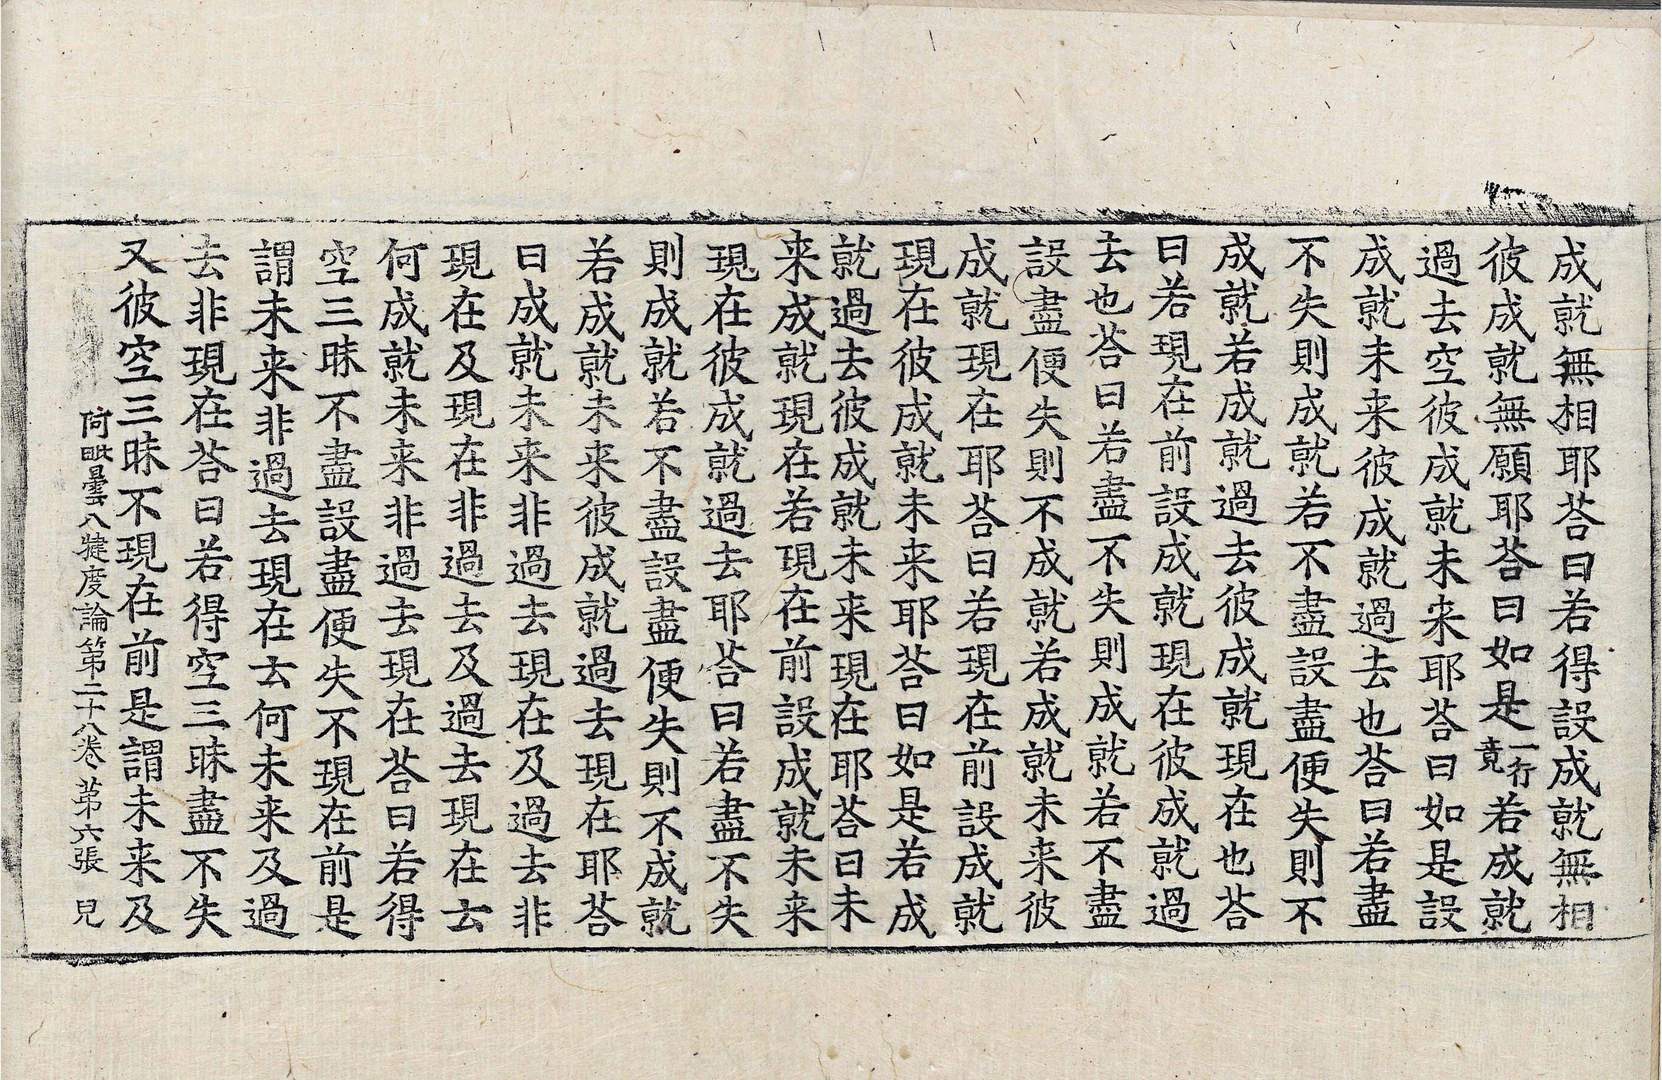 成就無相耶荅曰若得設成就無相
彼成就無願耶荅曰如是一行竟若成就
過去空彼成就未来耶荅曰如是設
成就未来彼成就過去也荅曰若盡
不失則成就若不盡設盡便失則不
成就若成就過去彼成就現在也荅
曰若現在前設成就現在彼成就過
去也荅曰若盡不失則成就若不盡
設盡便失則不成就若成就未来彼
成就現在耶荅曰若現在前設成就
現在彼成就未来耶荅曰如是若成
就過去彼成就未来現在耶荅曰未
来成就現在若現在前設成就未来
現在彼成就過去耶荅曰若盡不失
則成就若不盡設盡便失則不成就
若成就未来彼成就過去現在耶荅
曰成就未来非過去現在及過去非
現在及現在非過去及過去現在云
何成就未来非過去現在荅曰若得
空三昧不盡設盡便失不現在前是
謂未来非過去現在云何未来及過
去非現在荅曰若得空三昧盡不失
又彼空三昧不現在前是謂未来及
阿毗曇八犍度論第二十八卷 苐六張 皃